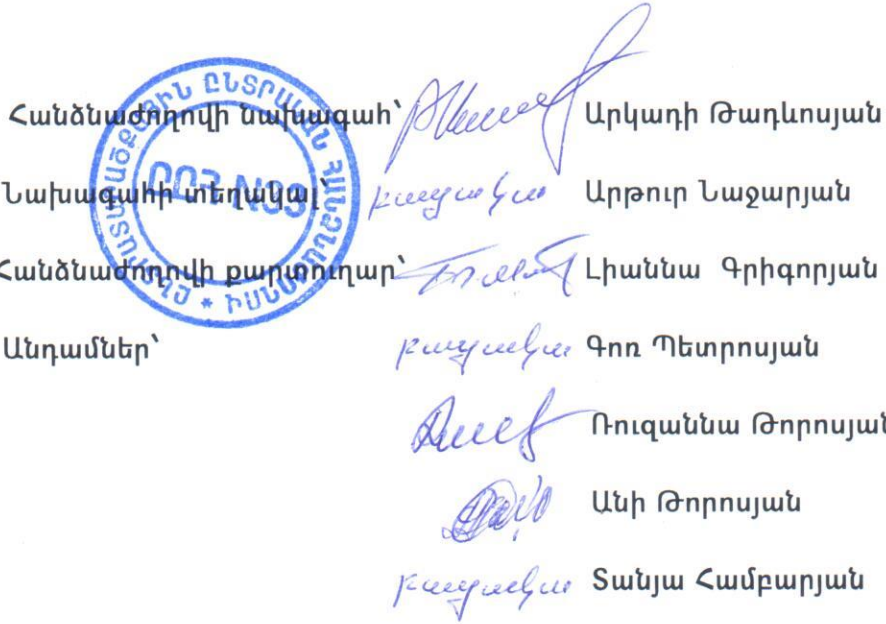 Հանձնաժողովի նախագահ՝ Արկադի Թադևոսյան
Նախագահի տեղակալ՝ բացակա Արթուր Նաջարյան
Հանձնաժողովի քարտուղար՝ Լիաննա Գրիգորյան
Անդամներ՝ բացակա Գոռ Պետրոսյան
Ռուզաննա Թորոսյան
Անի Թորոսյան
բացակա Տանյա Համբարյան
ԸԸՀ N39